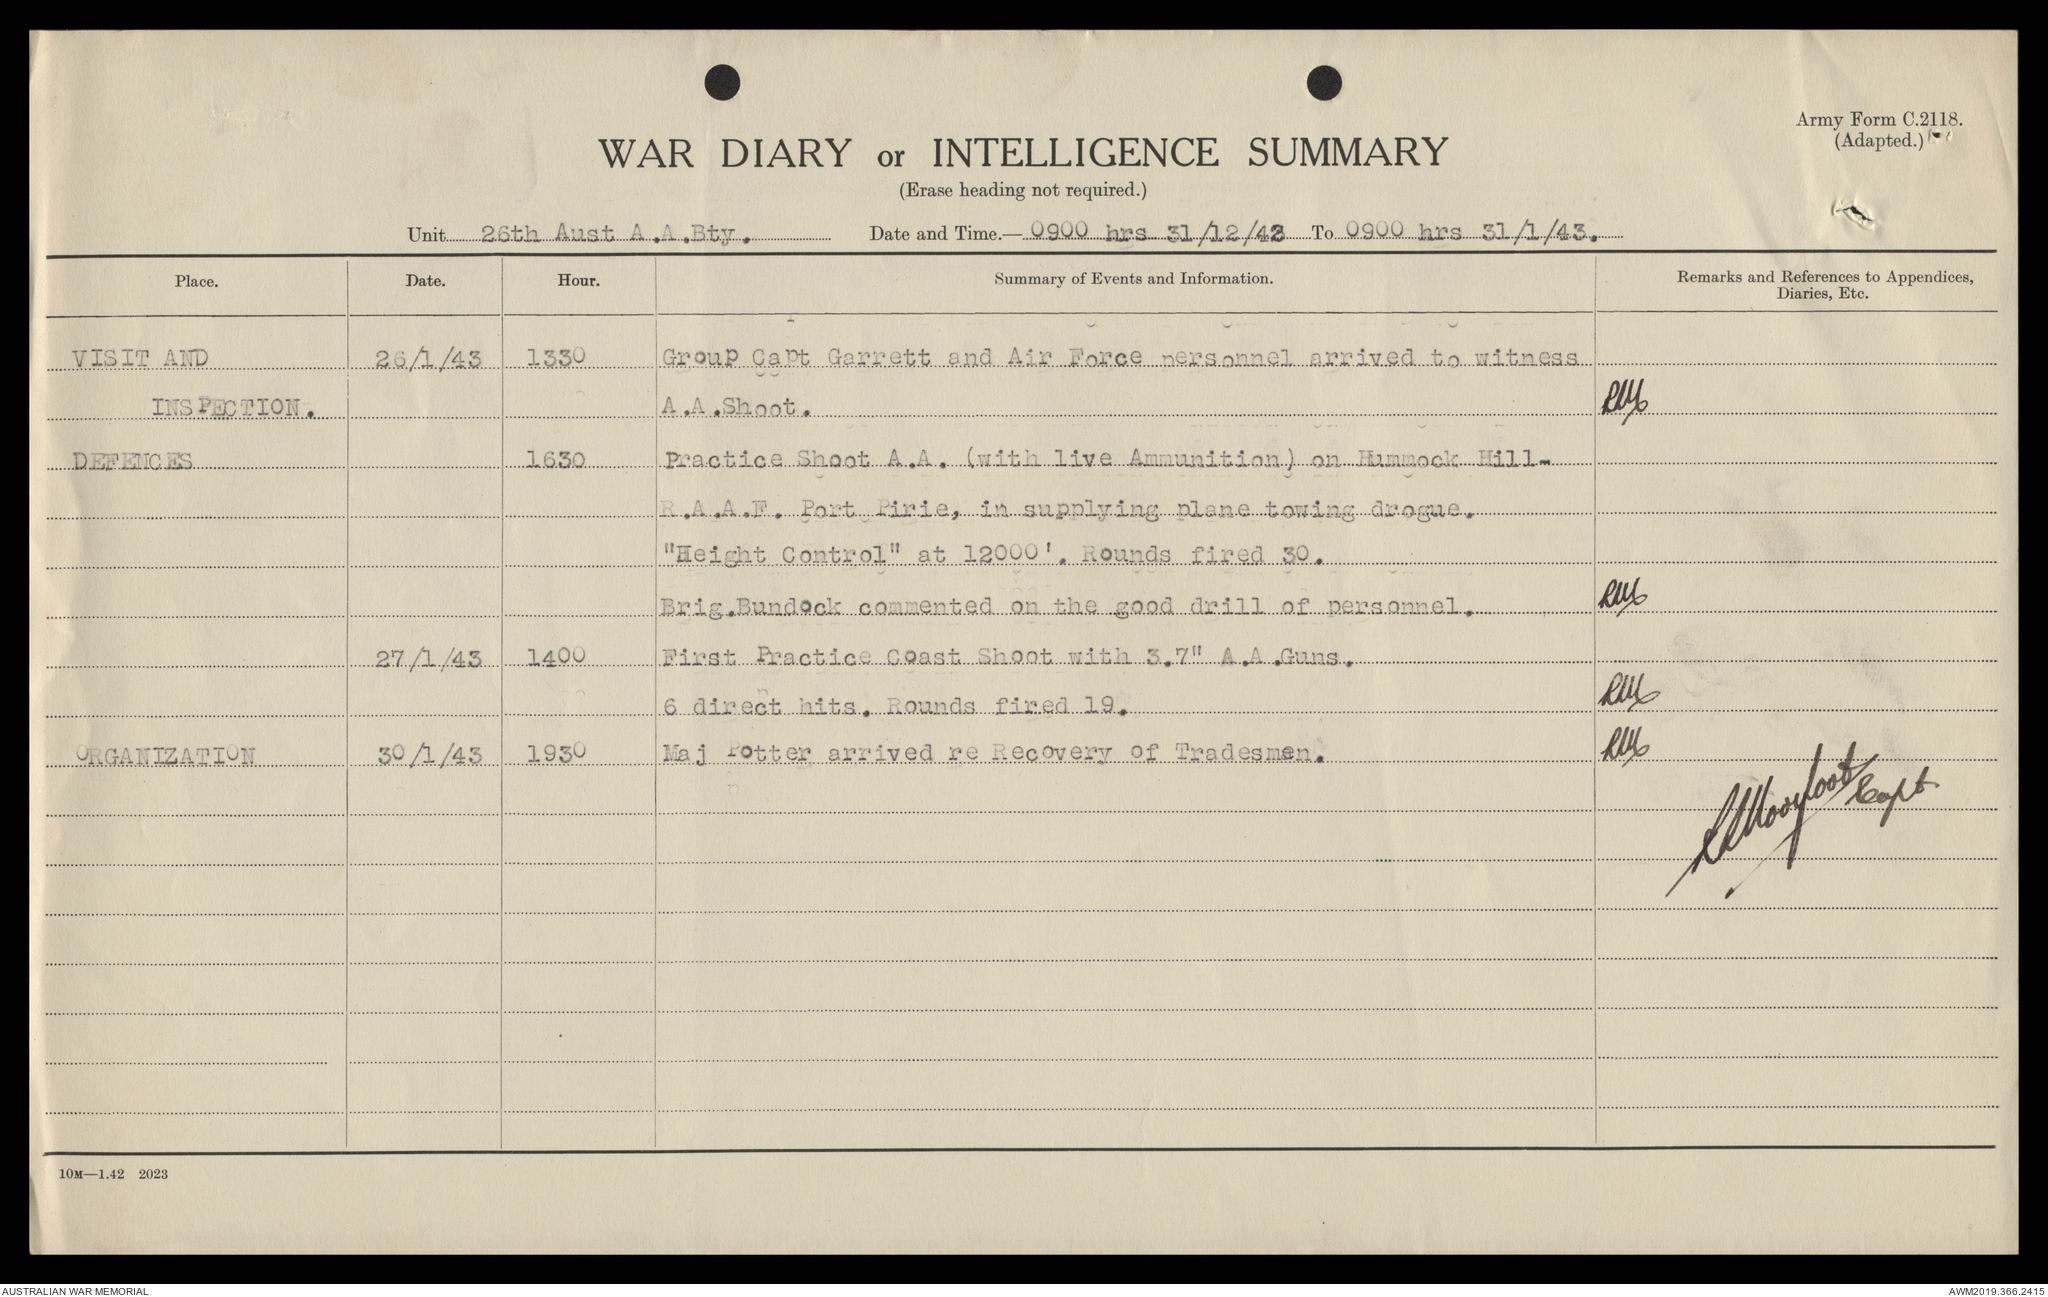 Army Form C.2118.
(Adapted.)
WAR DIARY or INTELLIGENCE SUMMARY
(Erase heading not required.)
Unit 26th Aust A.A.Bty. Date and Time.— 0900 hrs 31/12/42 To 0900 hrs 31/1/43.
Place. Date. Hour. Summary of Events and Information. Remarks and References to Appendices,
Diaries, Etc.
VISIT AND 26/1/43 1330 Group Capt Garrett and Air Force personnel arrived to witness
INSPECTION. A.A.Shoot.
DEFENCES 1630 Practice Shoot A.A. (with live Ammunition) on Hummock Hill-
R.A.A.F. Port Pirie, in supplying plane towing drogue.
"Height Control" at 12000'. Rounds fired 30.
Brig.Bundock commented on the good drill of personnel.
27/1/43 1400 First Practice Coast Shoot with 3.7" A.A.Guns.
6 direct hits. Rounds fired 19.
ORGANIZATION 30/1/43 1930 Maj Potter arrived re Recovery of Tradesmen.
Capt
10M—1.42 2023
AUSTRALIAN WAR MEMORIAL AWM2019.366.2415